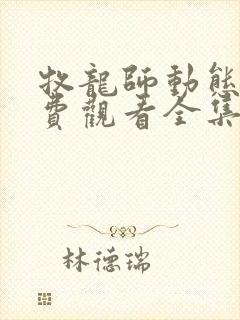 牧龍師動態
費觀看全集
林德瑞